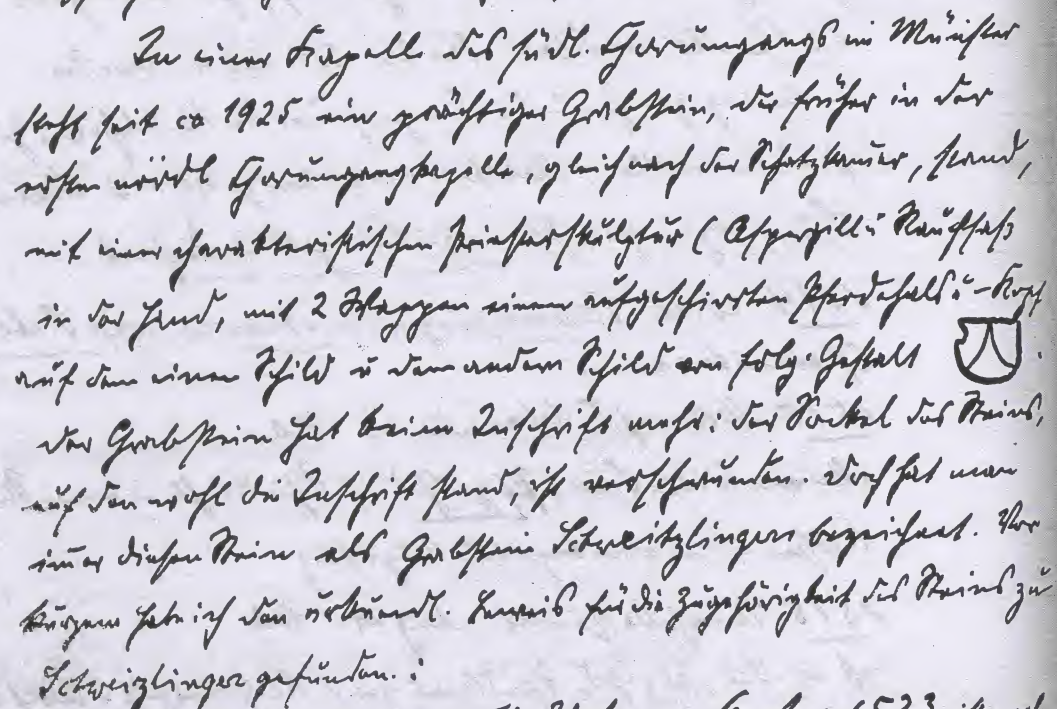 In einer Kapelle des südl. Chorumgangs im Münster
steht seit ca 1925 ein prächtiger Grabstein, der früher in der
ersten nördl Chorumgangkapelle, gleich nach der Schatzkam̅er, stand,
mit einer charakteristischen Priesterskulptur (Aspergill u Rauchfaß
in der Hand, mit 2 Wappen einem aufgeschirrten Pferdehals u - Kopf
auf dem einen Schild u dem andern Schild von folg. Gestalt .
Der Grabstein hat keine Inschrift mehr; der Sockel des Steins,
auf dem wohl die Inschrift stand, ist verschwunden. Doch hat man
im̅er diesen Stein als Grabstein Schreitzlingers bezeichnet. Vor
kurzem habe ich den urkundl. Beweis für die Zugehörigkeit des Steins zu
gefunden. :
1523